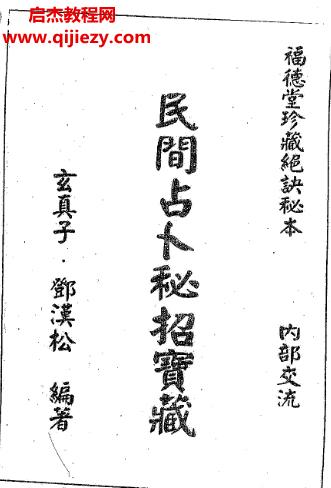 启杰教程网
www.qijiezy.com
福德堂珍藏絕訣秘本
内部交流
民間占卜秘招寶藏
玄真子·鄧漢松 編著